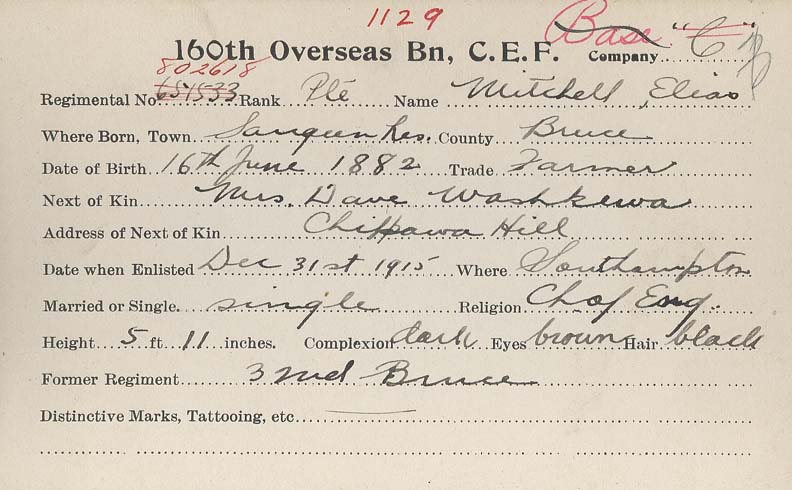 1129
160th Overseas Bn, C.E.F. Base Company "C"
802618
Regimental No. 651533 Rank Pte Name Mitchell, Elias
Where Born, Town Saugeen Res. County Bruce
Date of Birth 16th June 1882 Trade Farmer
Next of Kin Mrs. Dave Washkewa
Address of Next of Kin Chippawa Hill
Date when Enlisted Dec 31st 1915 Where Southampton
Married or Single. single Religion Ch of Eng.
Height 5 ft 11 inches. Complexion dark Eyes brown Hair black
Former Regiment 32nd Bruce
Distinctive Marks, Tattooing, etc.